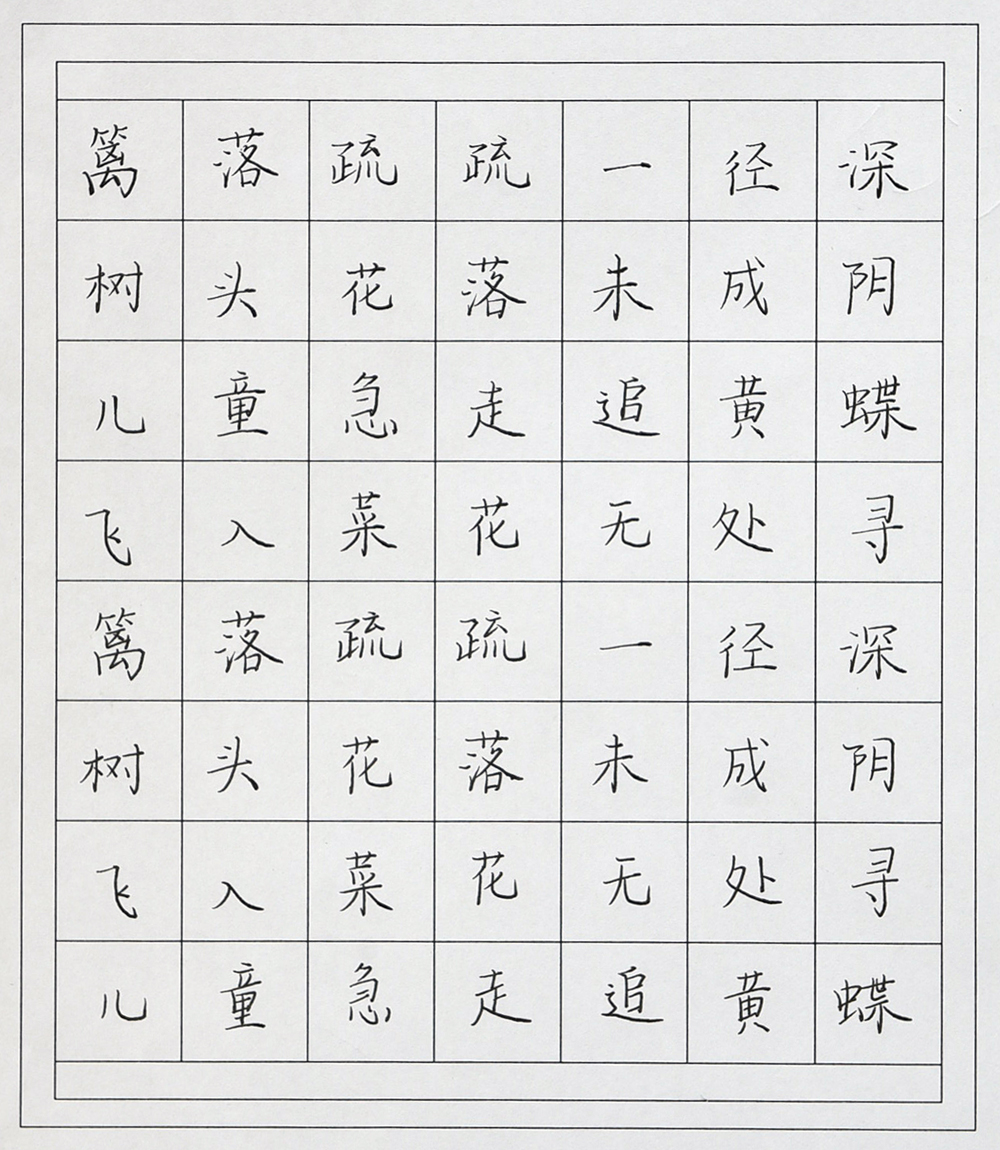 篱落疏疏一径深
树头花落未成阴
儿童急走追黄蝶
飞入菜花无处寻
篱落疏疏一径深
树头花落未成阴
飞入菜花无处寻
儿童急走追黄蝶